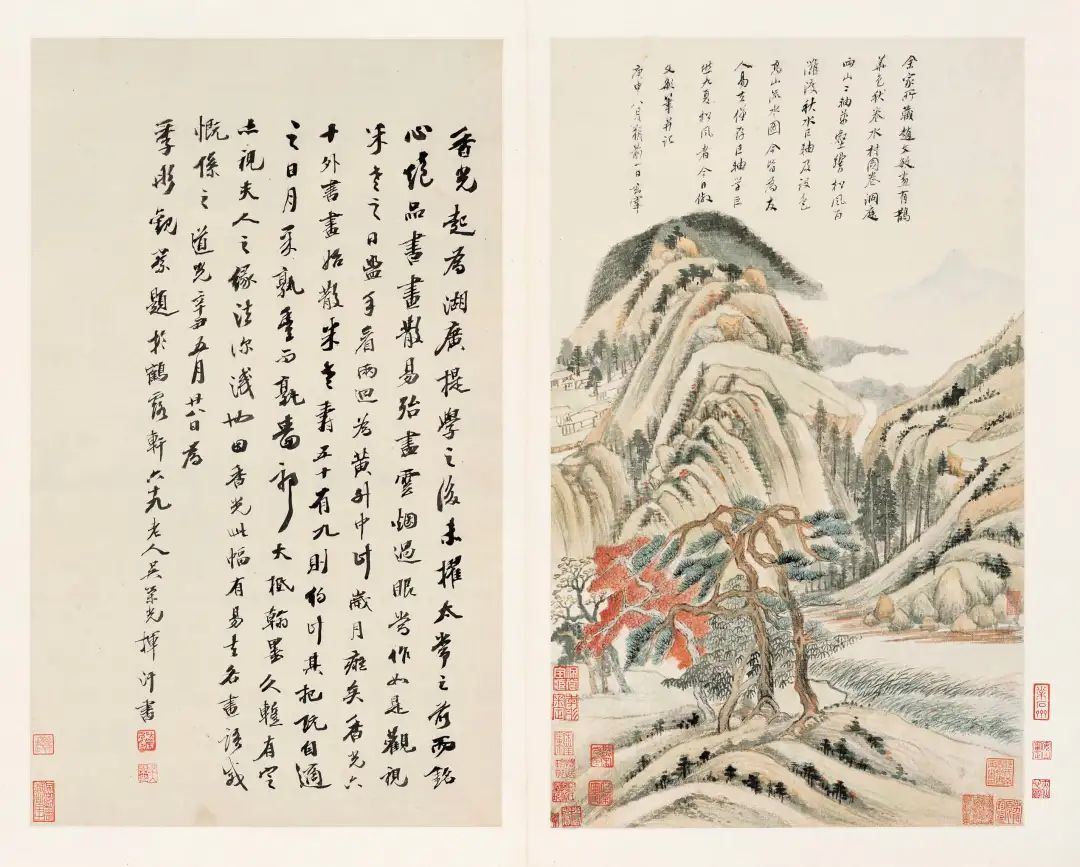 余家所藏趙文敏畫有鵲
華色秋卷水村圖卷洞庭
兩山二軸萬壑響松風百
灘渡秋水巨軸及設色
高山流水圖今皆為友
人易去僅存巨軸學巨
然九夏松風者今日倣
文敏筆并記
庚申八月朔前一日玄宰
香光起為湖廣提學之後未擢太常之前而銘
心絕品書畫散易殆盡雲烟過眼當作如是觀視
米老之日盥手看兩迴為黃中時歲月癡矣香光六
十外書畫始散米老壽五十有九則約計其把玩自適
之日月孰多而孰嗇邪大抵翰墨久暫有定
亦視夫人之緣法深淺也因香光此幅有易去名畫語感
慨係之道光辛丑五月廿八日為
季彤觀察題於鶴露軒六十九老人吳榮光揮汗書